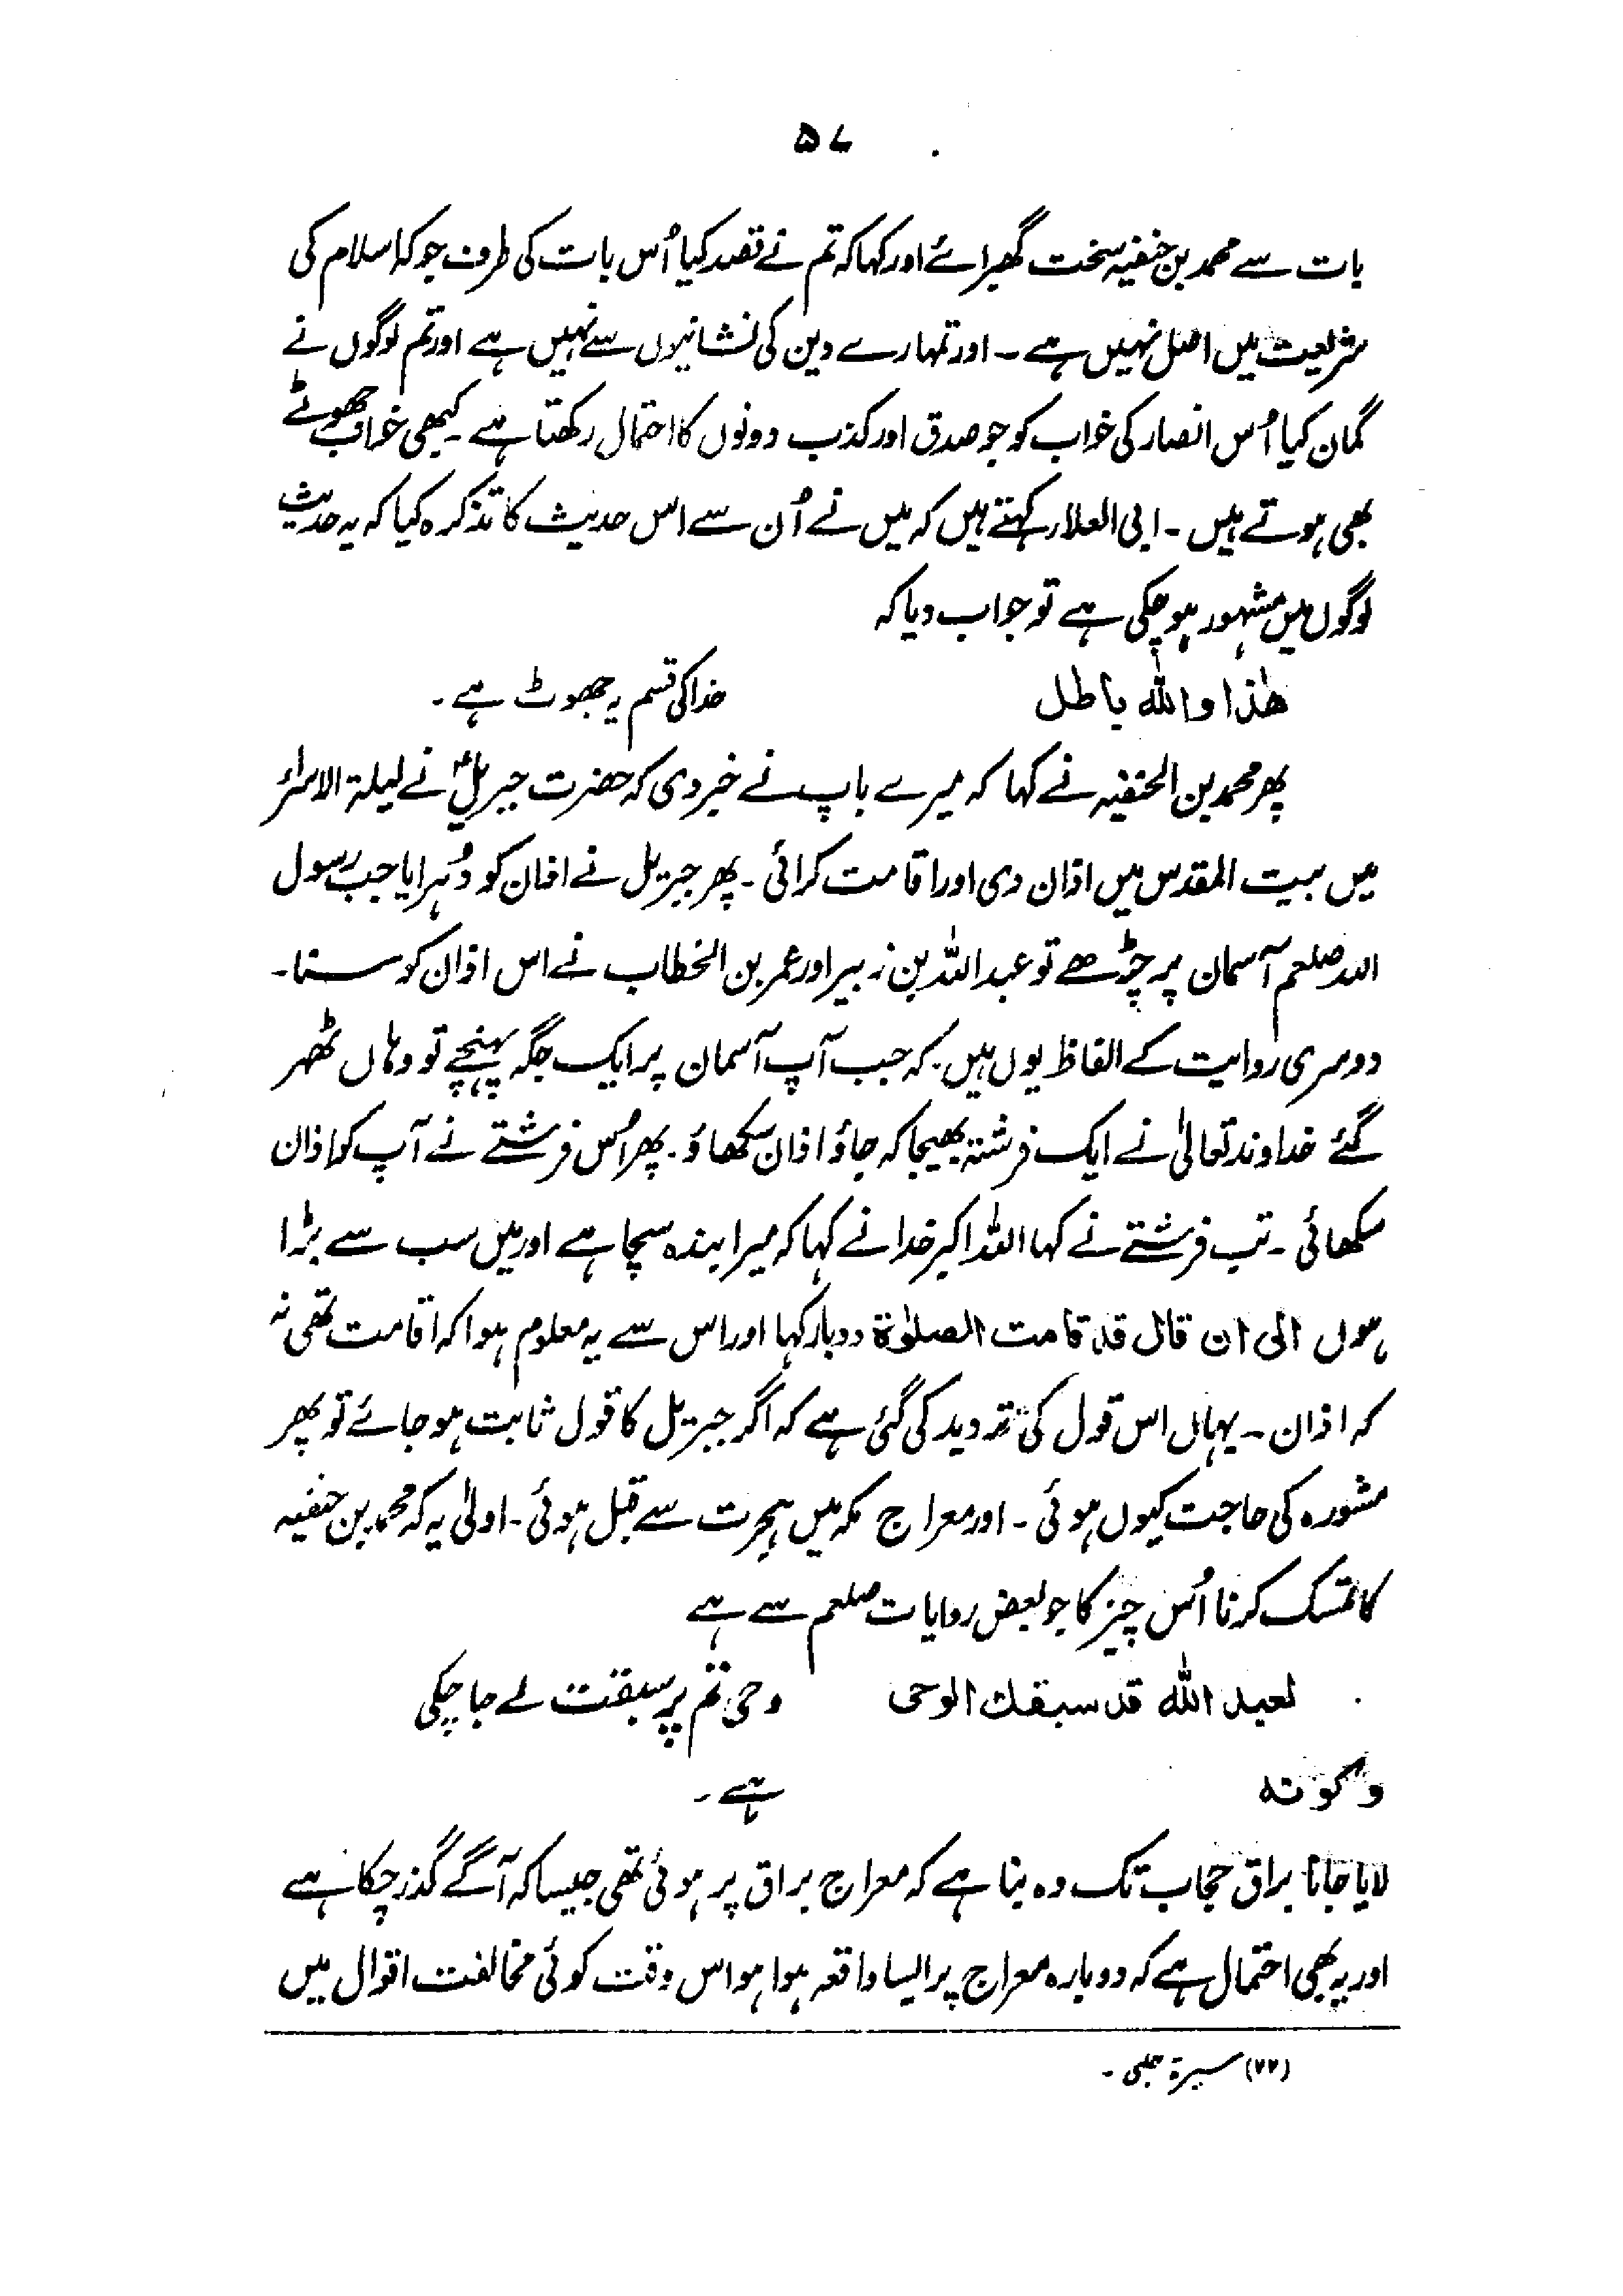 ۵۷
بات سے محمد بن حنفیہ سخت گھبرائے اور کہا کہ تم نے قصد کیا اُس بات کی طرف جو کہ اسلام کی
شریعت میں اصل نہیں ہے ۔ اور تمہارے دین کی نشانیوں سے نہیں ہے اور تم لوگوں نے
گمان کیا اُس انصار کی خواب کو جو صدق اور کذب دونوں کا احتمال رکھتا ہے ۔ کبھی خواب جھوٹے
بھی ہوتے ہیں ۔ ابی العلاء کہتے ہیں کہ میں نے اُن سے اس حدیث کا تذکرہ کیا کہ یہ حدیث
لوگوں میں مشہور ہو چکی ہے تو جواب دیا کہ
ھٰذا واللہ باطل خدا کی قسم یہ جھوٹ ہے ۔
پھر محمد بن الحنفیہ نے کہا کہ میرے باپ نے خبر دی کہ حضرت جبریلؑ نے لیلۃ الاسراء
میں بیت المقدس میں اذان دی اور اقامت کرائی ۔ پھر جبریل نے اذان کو دُہرایا جب رسول
اللہ صلعم آسمان پر چڑھے تو عبداللہ بن زبیر اور عمر بن الخطاب نے اس اذان کو سنا ۔
دوسری روایت کے الفاظ یوں ہیں ۔ کہ جب آپ آسمان پر ایک جگہ پہنچے تو وہاں ٹھہر
گئے خداوند تعالیٰ نے ایک فرشتہ بھیجا کہ جاؤ اذان سکھاؤ ۔ پھر اُس فرشتے نے آپ کو اذان
سکھائی ۔ تب فرشتے نے کہا اللہ اکبر خدا نے کہا کہ میرا بندہ سچا ہے اور میں سب سے بڑا
ہوں الی ان قال قد قامت الصلوٰۃ دوبار کہا اور اس سے یہ معلوم ہوا کہ اقامت تھی نہ
کہ اذان ۔ یہاں اس قول کی تردید کی گئی ہے کہ اگر جبریل کا قول ثابت ہو جائے تو پھر
مشورہ کی حاجت کیوں ہوئی ۔ اور معراج مکہ میں ہجرت سے قبل ہوئی ۔ اولیٰ یہ کہ محمد بن حنفیہ
کا تمسک کرنا اُس چیز کا جو بعض روایات صلعم سے ہے
لعبد اللہ قد سبقك الوحی وحی تم پر سبقت لے جا چکی
وکونہ ہے ۔
لایا جانا براق حجاب تک وہ بنا ہے کہ معراج براق پر ہوئی تھی جیسا کہ آگے گذر چکا ہے
اور یہ بھی احتمال ہے کہ دوبارہ معراج پر ایسا واقعہ ہوا ہو اس وقت کوئی مخالفت اقوال میں
(۲۲) سیرۃ حلبی ۔